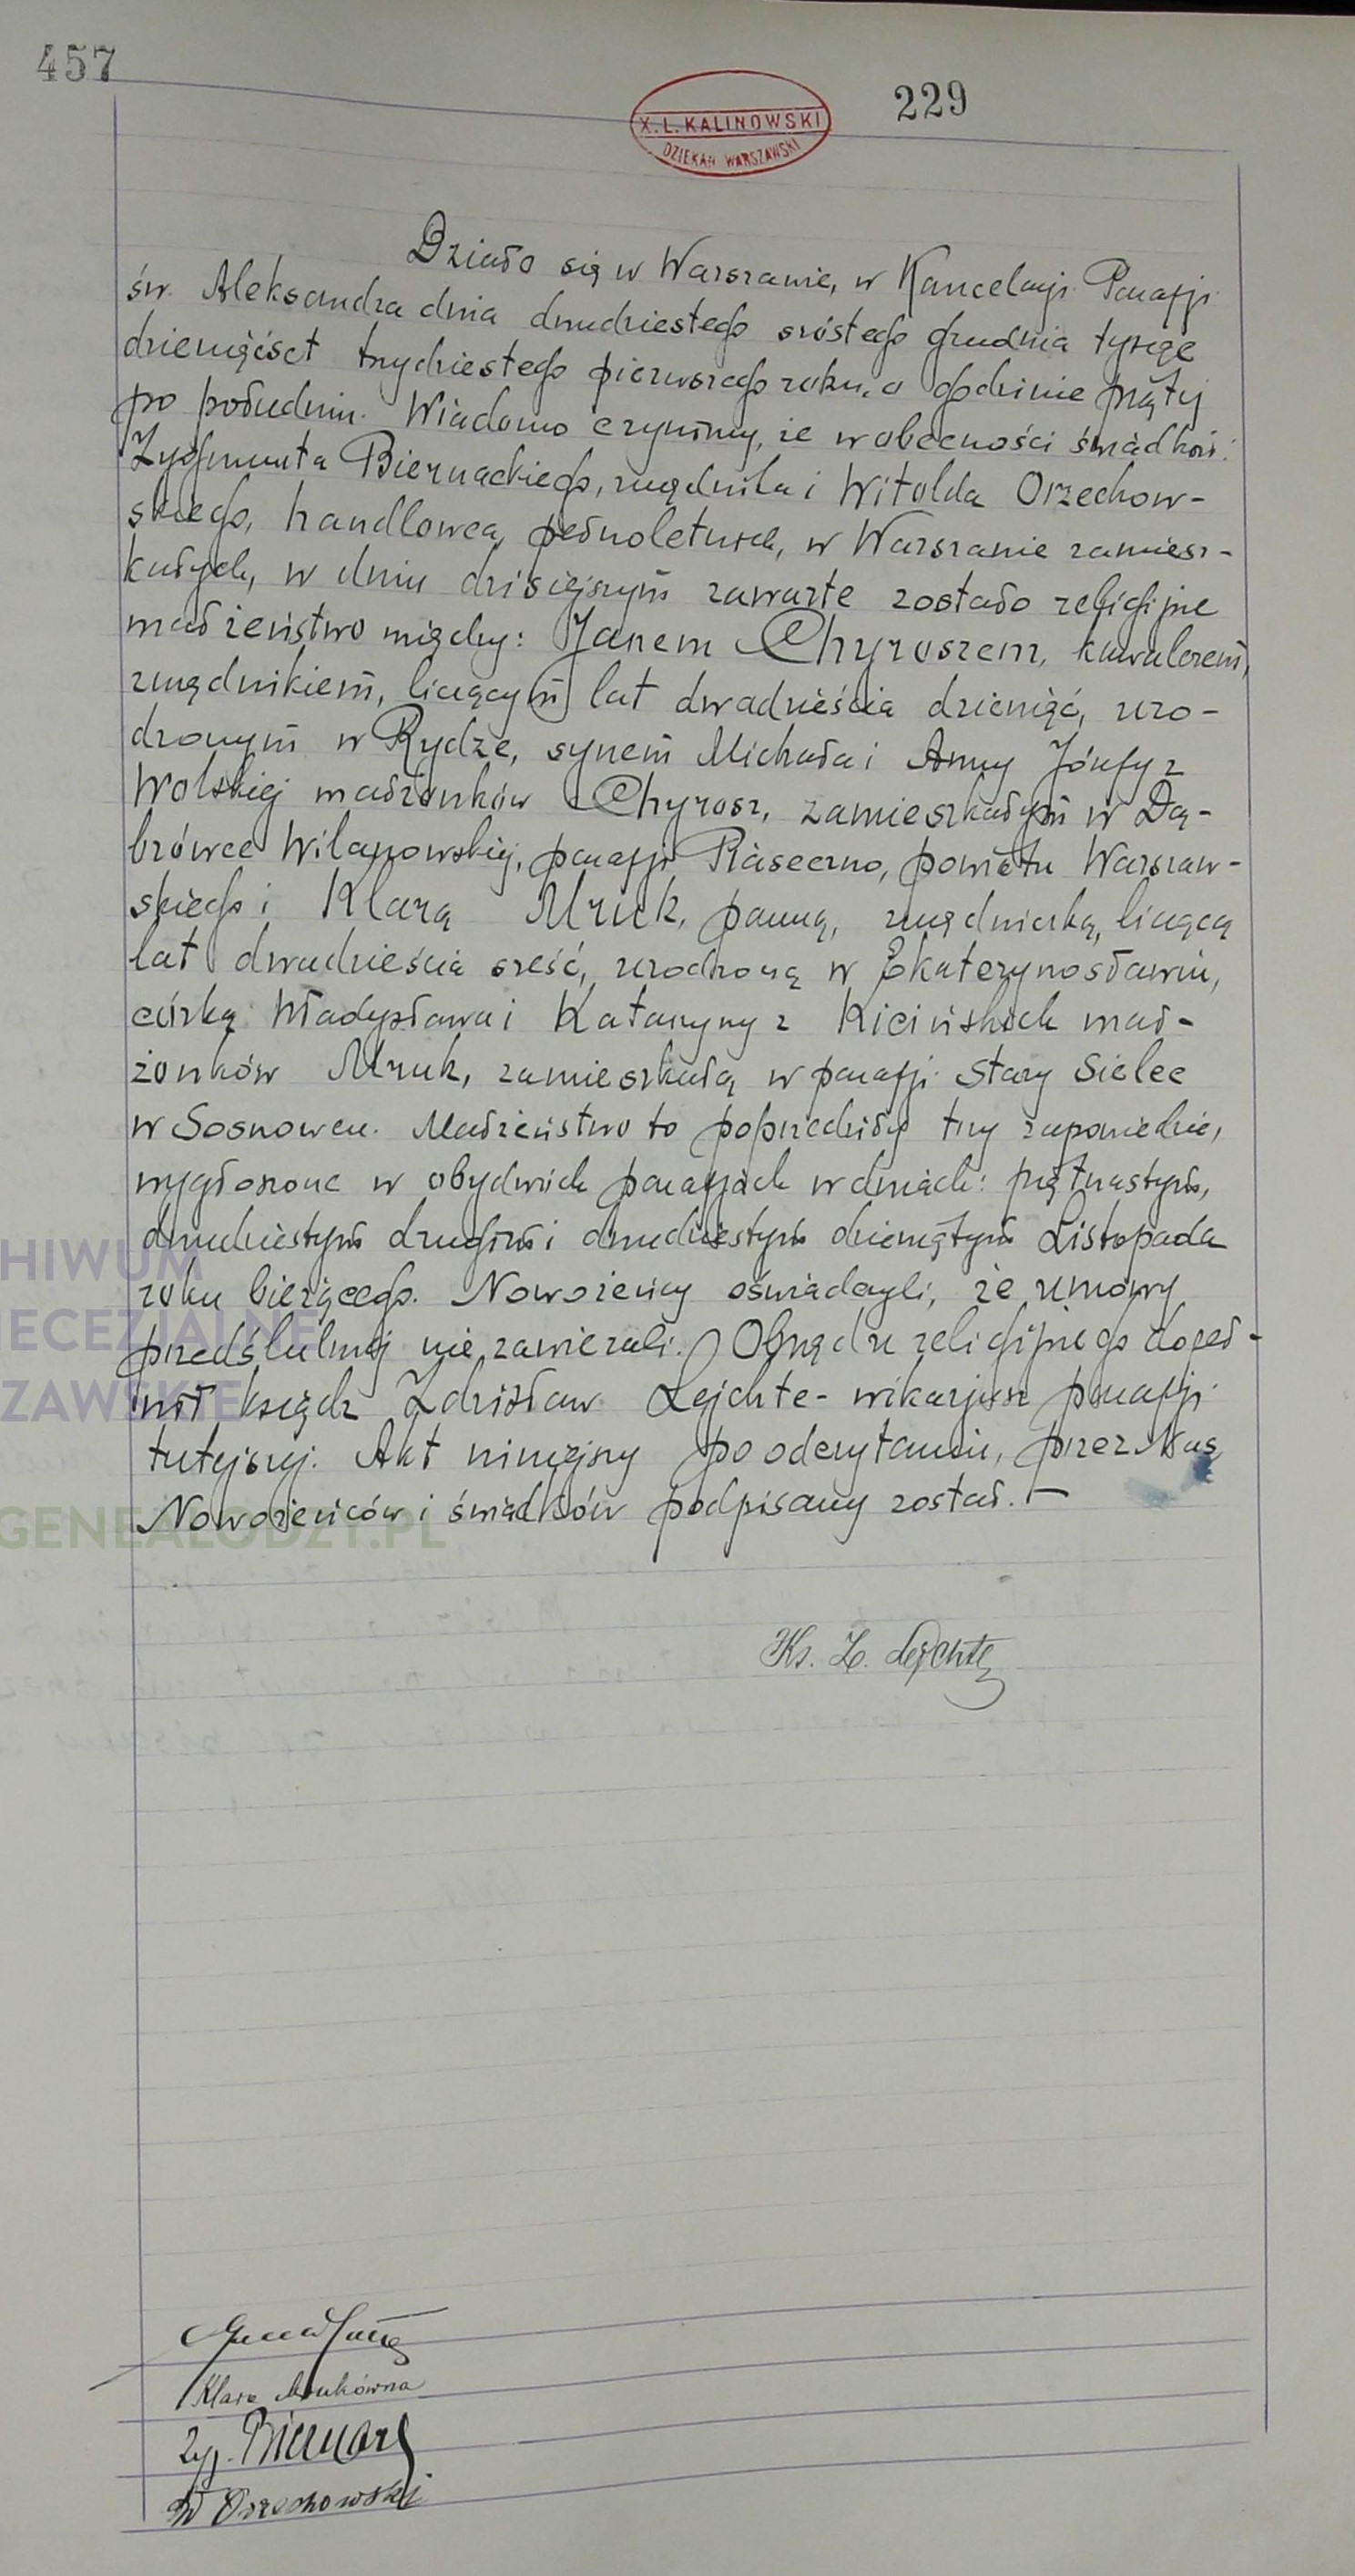 457
229
X. L. KALINOWSKI
DZIEKAN WARSZAWSKI
Działo się w Warszawie, w Kancelarji Parafji
św. Aleksandra dnia dwudziestego szóstego grudnia tysiąc
dziewięćset trzydziestego pierwszego roku, o godzinie piątej
po południu. Wiadomo czynimy, że w obecności świadków:
Zygmunta Biernackiego, urzędnika i Witolda Orzechow-
skiego, handlowca, pełnoletnich, w Warszawie zamiesz-
kałych, w dniu dzisiejszym zawarte zostało religijne
małżeństwo między: Janem Chyroszem, kawalerem,
urzędnikiem, liczącym lat dwadzieścia dziewięć, uro-
dzonym w Rydze, synem Michała i Anny Józefy z
Wolskiej małżonków Chyrosz, zamieszkałym w Dą-
brówce Wilanowskiej, parafji Piaseczno, powiatu Warszaw-
skiego i Klarą Mruk, panną, urzędniczką, liczącą
lat dwadzieścia sześć, urodzoną w Ekaterynosławiu,
córką Władysława i Katarzyny z Kicińskich mał-
żonków Mruk, zamieszkałą w parafji Stary Sielec
w Sosnowcu. Małżeństwo to poprzedziły trzy zapowiedzie,
wygłoszone w obydwóch parafjach w dniach: piętnastym,
dwudziestym drugim i dwudziestym dziewiątym Listopada
roku bieżącego. Nowożeńcy oświadczyli, że umowy
przedślubnej nie zawierali. Obrzędu religijnego dopeł-
nił ksiądz Zdzisław Lejchte - wikarjusz parafji
tutejszej. Akt niniejszy po odczytaniu, przez Nas,
Nowożeńców i świadków podpisany został. —
Ks. Z. Lejchte
Klara Mrukówna
Zyg. Biernacki
W Orzechowski
HIWUM
ECEZJALNE
ZAWSKIE
GENEALODZY.PL